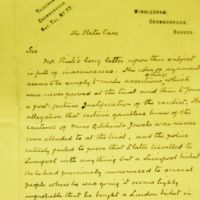 WINDLESHAM,
CROWBOROUGH,
SUSSEX.
The Slater Case
Sir
Mr Park's long letter upon this subject
is full of inaccuracies. His idea of argument
seems to be simply to make assertions which
were never proved at the trial and then to form
a post-partum justification of the verdict. The
allegation that certain gamblers knew of the
existence of Miss Gilchrist's jewels was never
even alluded to at the trial, and the police
entirely failed to prove that Slater travelled to
Liverpool with anything but a Liverpool ticket
As he had previously announced to several
people where he was going it seems highly
improbable that he bought a London ticket in